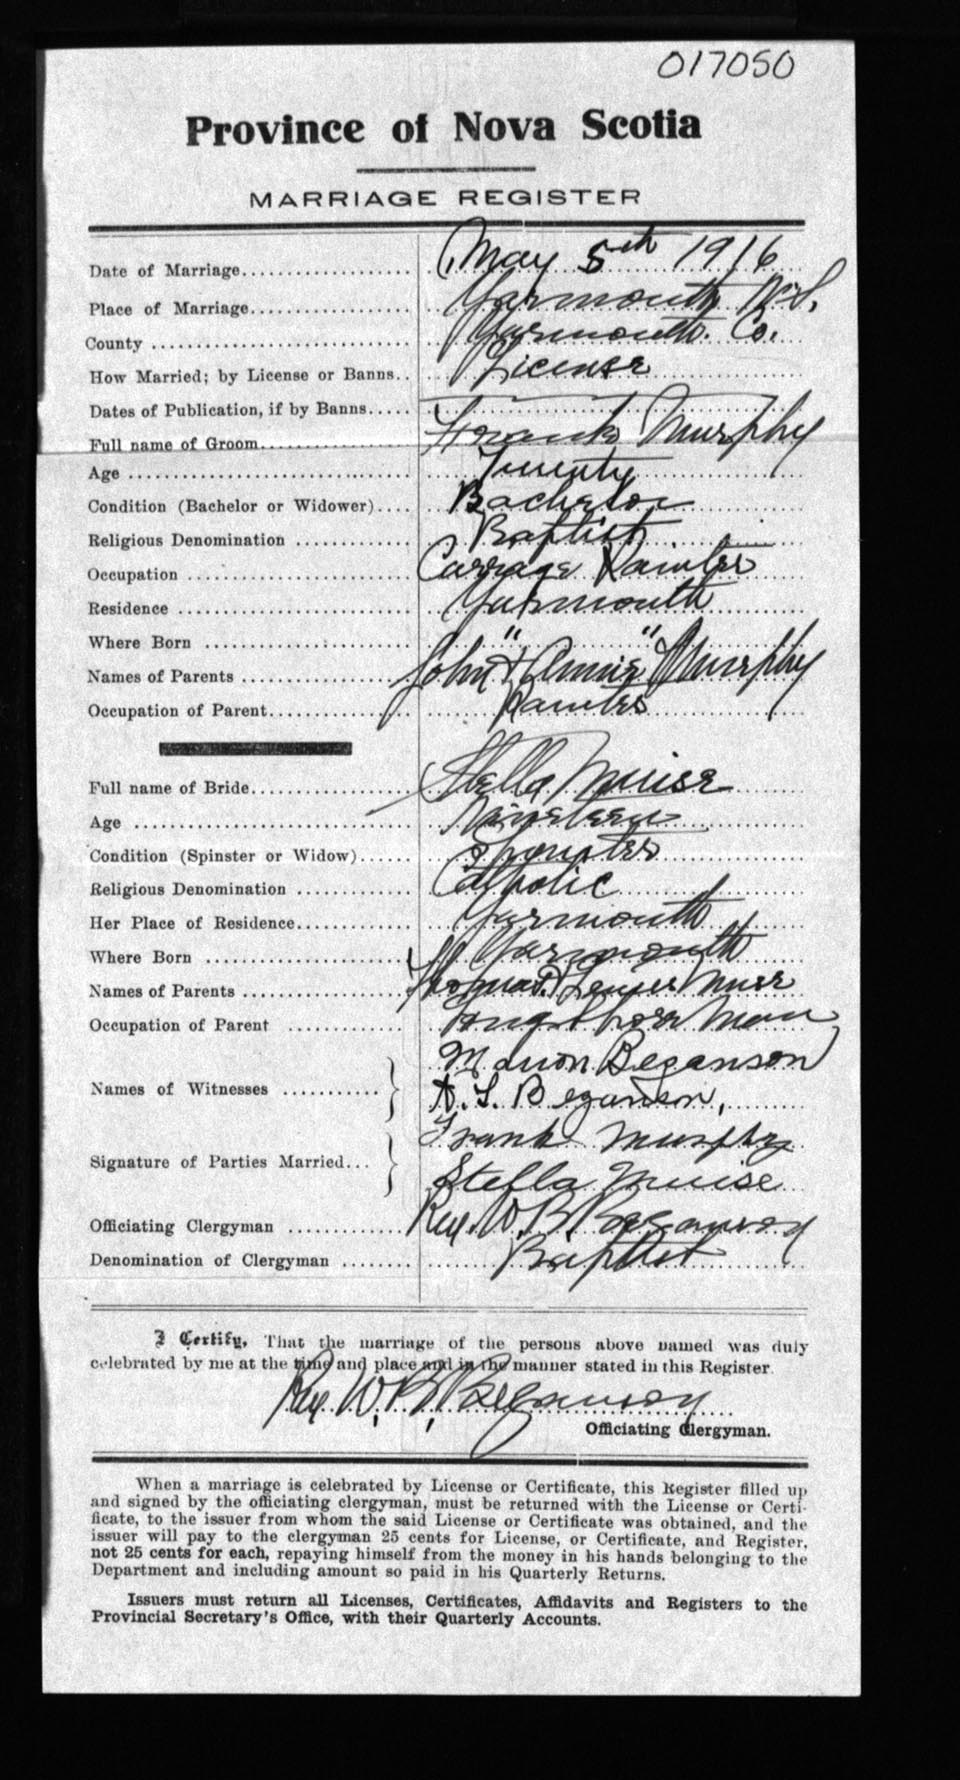 017050
Province of Nova Scotia
MARRIAGE REGISTER
Date of Marriage May 5th 1916
Place of Marriage Yarmouth N.S.
County Yarmouth Co.
How Married; by License or Banns License
Dates of Publication, if by Banns
Full name of Groom Frank Murphy
Age Twenty
Condition (Bachelor or Widower) Bachelor
Religious Denomination Baptist
Occupation Carrage Painter
Residence Yarmouth
Where Born " "
Names of Parents John & Annie Murphy
Occupation of Parent Painter
Full name of Bride Stella Muise
Age Nineteen
Condition (Spinster or Widow) Spinster
Religious Denomination Catholic
Her Place of Residence Yarmouth
Where Born Yarmouth
Names of Parents Thomas
Occupation of Parent Longshore Man
Names of Witnesses Marion Beganson
A. L. Beganson,
Signature of Parties Married Frank Murphy
Stella Muise
Officiating Clergyman Rev. W. B. Bezanson
Denomination of Clergyman Baptist
I Certify, That the marriage of the persons above named was duly
celebrated by me at the time and place and in the manner stated in this Register.
Rev W. B. Bezanson
Officiating Clergyman.
When a marriage is celebrated by License or Certificate, this Register filled up
and signed by the officiating clergyman, must be returned with the License or Certi-
ficate, to the issuer from whom the said License or Certificate was obtained, and the
issuer will pay to the clergyman 25 cents for License, or Certificate, and Register,
not 25 cents for each, repaying himself from the money in his hands belonging to the
Department and including amount so paid in his Quarterly Returns.
Issuers must return all Licenses, Certificates, Affidavits and Registers to the
Provincial Secretary's Office, with their Quarterly Accounts.